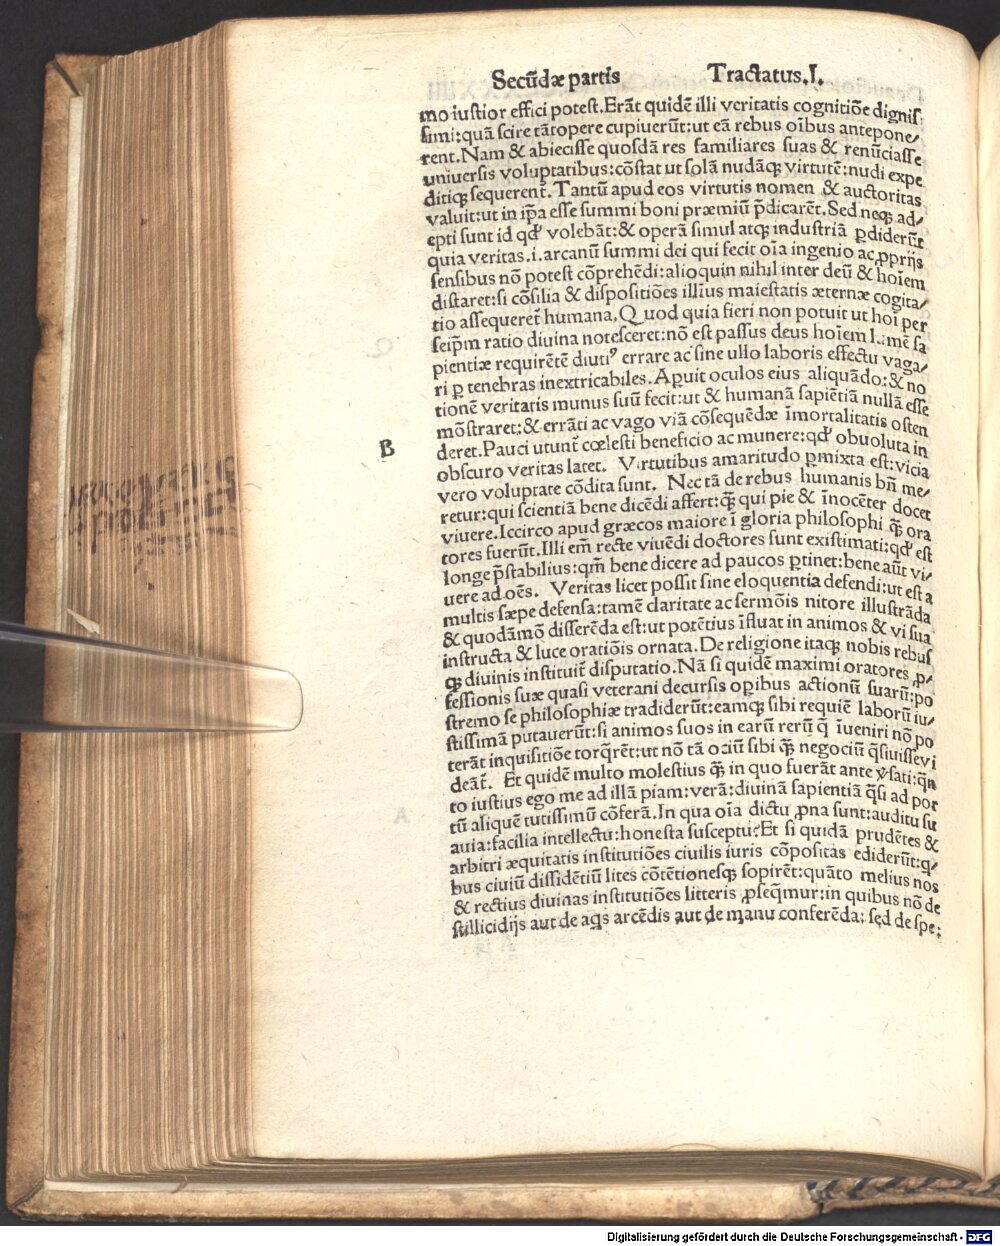 Secūdæ partis Tractatus.I.
mo iustior effici potest.Erāt quidē illi veritatis cognitiōe dignis:
simi:quā scire tātopere cupiuerūt:ut eā rebus oībus antepone/
rent.Nam & abiecisse quosdā res familiares suas & renūciasse
uniuersis voluptatibus:cōstat ut solā nudāqꝫ virtutē:nudi expe
ditiqꝫ sequerent̃.Tantū apud eos virtutis nomen & auctoritas
valuit:ut in ip̄a esse summi boni præmiū p̄dicarēt.Sed neqꝫ ad/
epti sunt id qđ volebāt:& operā simul atqꝫ industriā ꝑdiderūt
quia veritas.i.arcanū summi dei qui fecit oīa ingenio ac ꝓprijs
sensibus nō potest cōprehēdi:alioquin nihil inter deū & hoīem
distaret:si cōsilia & dispositiōes illius maiestatis æternæ cogita/
tio assequeret̃ humana.Quod quia fieri non potuit ut hoī per
seip̄m ratio diuina notesceret:nō est passus deus hoīem lumē sa
pientiæ requirētē diutiꝰ errare ac sine ullo laboris effectu vaga/
ri ꝑ tenebras inextricabiles.Aꝑuit oculos eius aliquādo:& no
tionē veritatis munus suū fecit:ut & humanā sapiētiā nullā esse
mōstraret:& errāti ac vago viā cōsequēdæ īmortalitatis osten
B
deret.Pauci utunt̃ cœlesti beneficio ac munere:qđ obuoluta in
obscuro veritas latet. Virtutibus amaritudo ꝑmixta est:vicia
vero voluptate cōdita sunt. Nec tā de rebus humanis bn̄ me/
retur:qui scientiā bene dicēdi affert:qꝫ̄ qui pie & īnocēter docet
viuere.Iccirco apud græcos maiore ī gloria philosophi qꝫ̄ ora
tores fuerūt.Illi em̄ recte viuēdi doctores sunt existimati:qđ est
longe p̄stabilius:qm̄ bene dicere ad paucos ꝑtinet:bene aūt vi/
uere ad oēs. Veritas licet possit sine eloquentia defendi:ut est a
multis sæpe defensa:tamē claritate ac sermōis nitore illustrāda
& quodāmō disserēda est:ut potētius īfluat in animos & vi sua
instructa & luce oratiōis ornata.De religione itaqꝫ nobis rebus
qꝫ diuinis instituit̃ disputatio.Nā si quidē maximi oratores ꝓ/
fessionis suæ quasi veterani decursis oꝑibus actionū suarū:po
stremo se philosophiæ tradiderūt:eamqꝫ sibi requiē laborū iu/
stissimā putauerūt:si animos suos in earū rerū q̄ īueniri nō po
terāt inquisitiōe torq̄rēt:ut nō tā ociū sibi qꝫ̄ negociū q̄siuisse vi
deāt̃. Et quidē multo molestius qꝫ̄ in quo fuerāt ante v̓sati:q̄n
to iustius ego me ad illā piam:verā:diuinā sapientiā q̄si ad por
tū aliquē tutissimū cōferā.In qua oīa dictu ꝓna sunt:auditu su
auia:facilia intellectu:honesta susceptu?Et si quidā prudētes &
arbitri æquitatis institutiōes ciuilis iuris cōpositas ediderūt:q/
bus ciuiū dissidētiū lites cōtētionesqꝫ sopirēt:quāto melius nos
& rectius diuinas institutiōes litteris ꝓseq̄mur:in quibus nō de
stillicidijs aut de aq̄s arcēdis aut de manu conferēda: sed de spe:
Digitalisierung gefördert durch die Deutsche Forschungsgemeinschaft - DFG